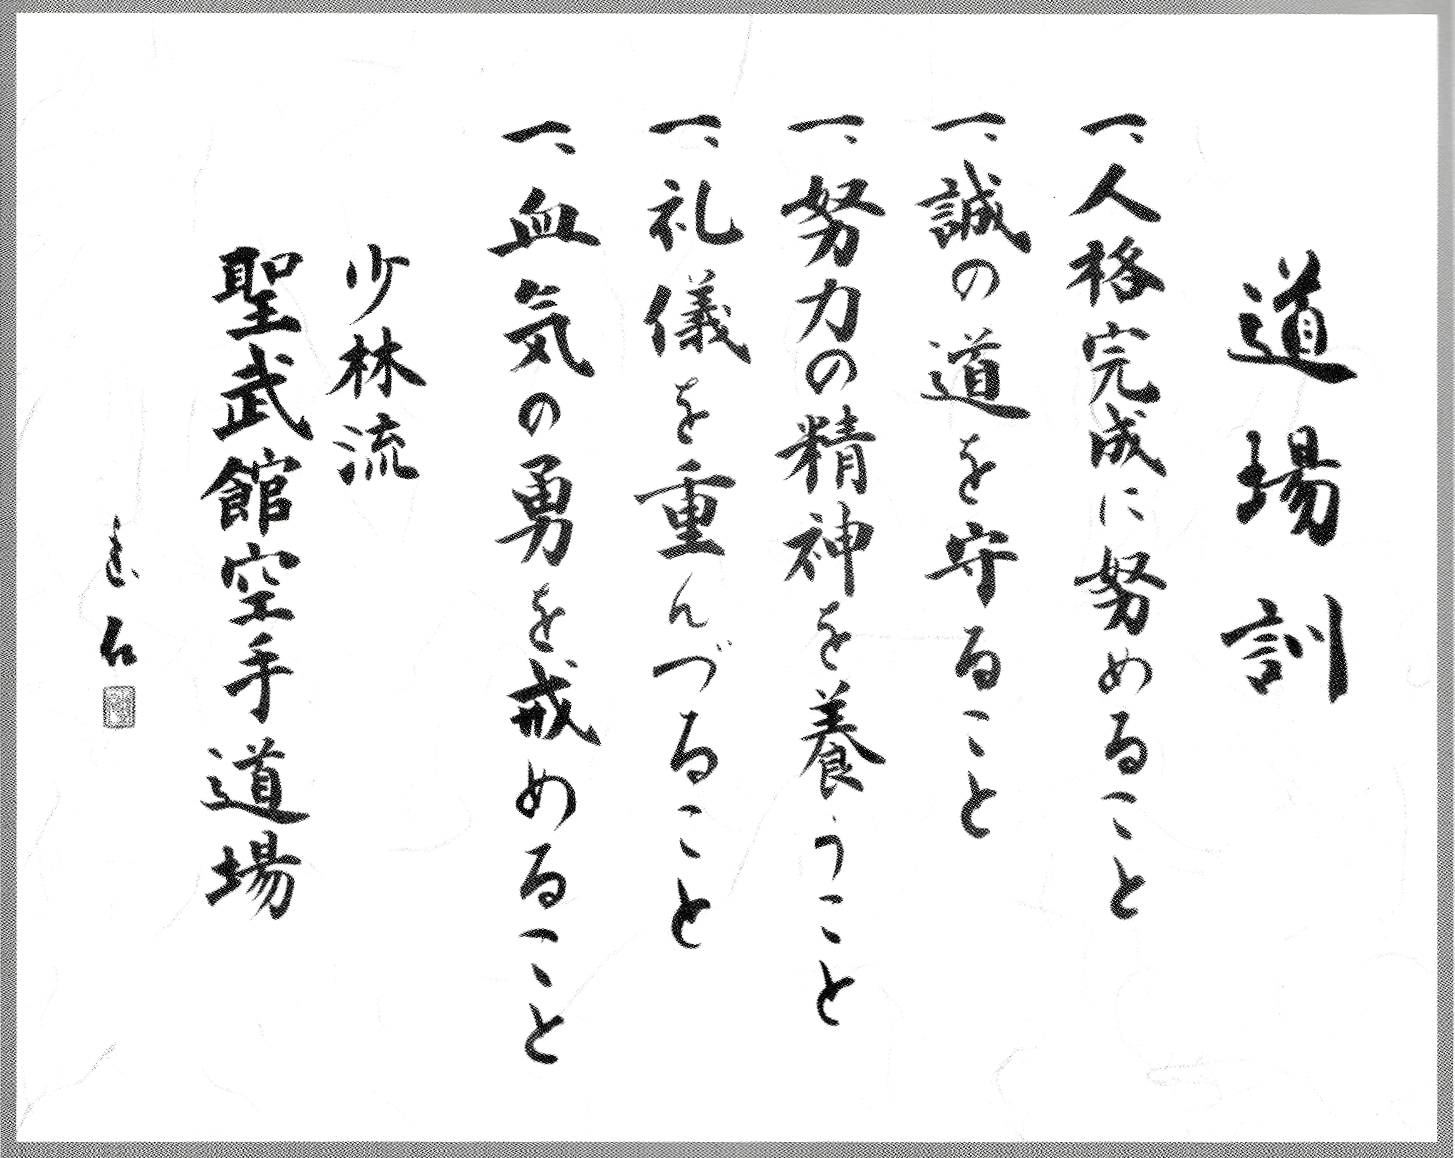 道場訓
一、人格完成に努めること
一、誠の道を守ること
一、努力の精神を養うこと
一、礼儀を重んづること
一、血気の勇を戒めること
少林流
聖武館空手道場